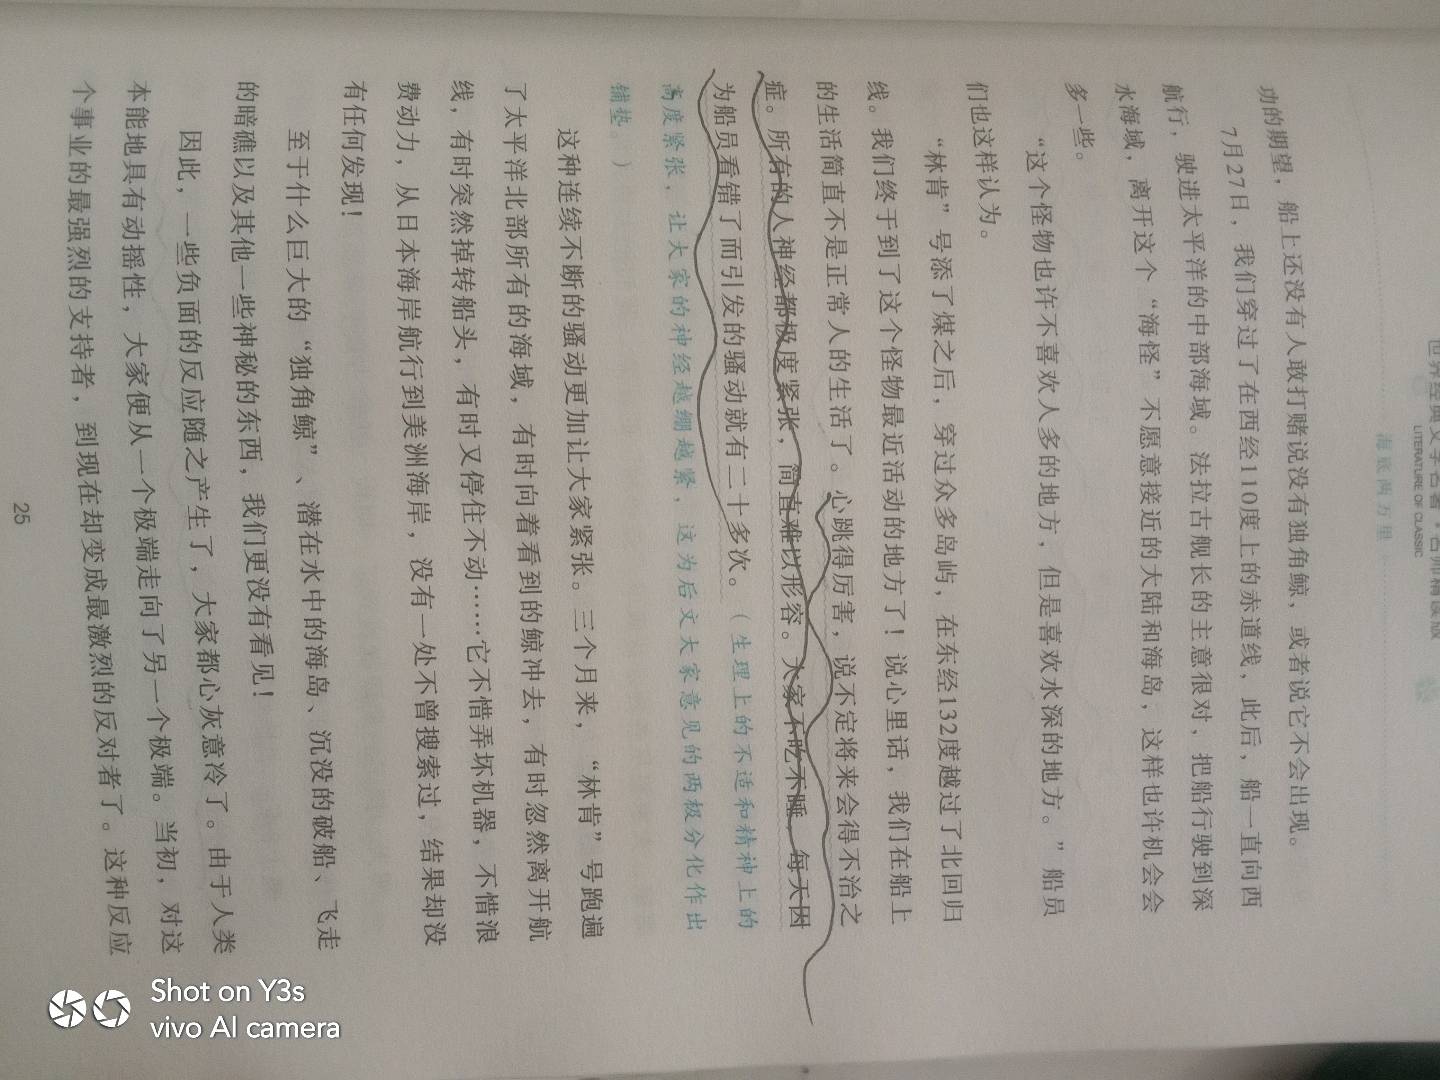 世界经典文学名著·名师精读版
LITERATURE OF CLASSIC
海底两万里
功的期望，船上还没有人敢打赌说没有独角鲸，或者说它不会出现。
7月27日，我们穿过了在西经110度上的赤道线，此后，船一直向西
航行，驶进太平洋的中部海域。法拉古舰长的主意很对，把船行驶到深
水海域，离开这个“海怪”不愿意接近的大陆和海岛，这样也许机会会
多一些。
“这个怪物也许不喜欢人多的地方，但是喜欢水深的地方。”船员
们也这样认为。
“林肯”号添了煤之后，穿过众多岛屿，在东经132度越过了北回归
线。我们终于到了这个怪物最近活动的地方了！说心里话，我们在船上
的生活简直不是正常人的生活了。心跳得厉害，说不定将来会得不治之
症。所有的人神经都极度紧张，简直难以形容。大家不吃不睡，每天因
为船员看错了而引发的骚动就有二十多次。（生理上的不适和精神上的
高度紧张，让大家的神经越绷越紧，这为后文大家意见的两极分化作出
铺垫。）
这种连续不断的骚动更加让大家紧张。三个月来，“林肯”号跑遍
了太平洋北部所有的海域，有时向着看到的鲸冲去，有时忽然离开航
线，有时突然掉转船头，有时又停住不动……它不惜弄坏机器，不惜浪
费动力，从日本海岸航行到美洲海岸，没有一处不曾搜索过，结果却没
有任何发现！
至于什么巨大的“独角鲸”、潜在水中的海岛、沉没的破船、飞走
的暗礁以及其他一些神秘的东西，我们更没有看见！
因此，一些负面的反应随之产生了，大家都心灰意冷了。由于人类
本能地具有动摇性，大家便从一个极端走向了另一个极端。当初，对这
个事业的最强烈的支持者，到现在却变成最激烈的反对者了。这种反应
25
Shot on Y3s
vivo AI camera